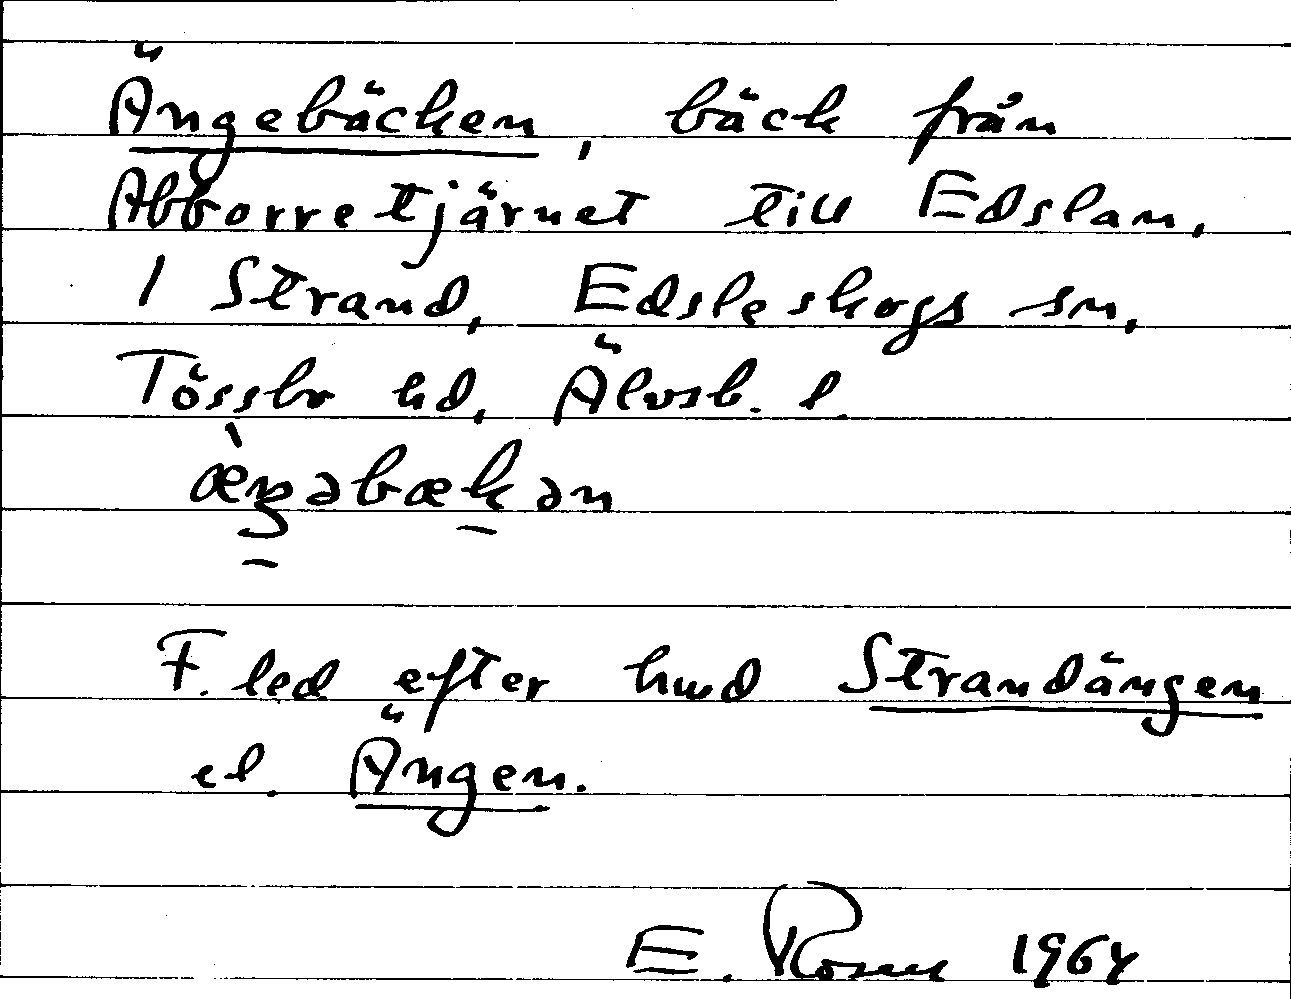 Ängebäcken, bäck från
Abborretjärnet till Edslan,
1 Strand, Edsleskogs sn,
Tössbo hd, Älvsb. l.
æ̀ŋəbækən
F. led efter hmd Strandängen
el. Ängen.
E. Rosen 1964